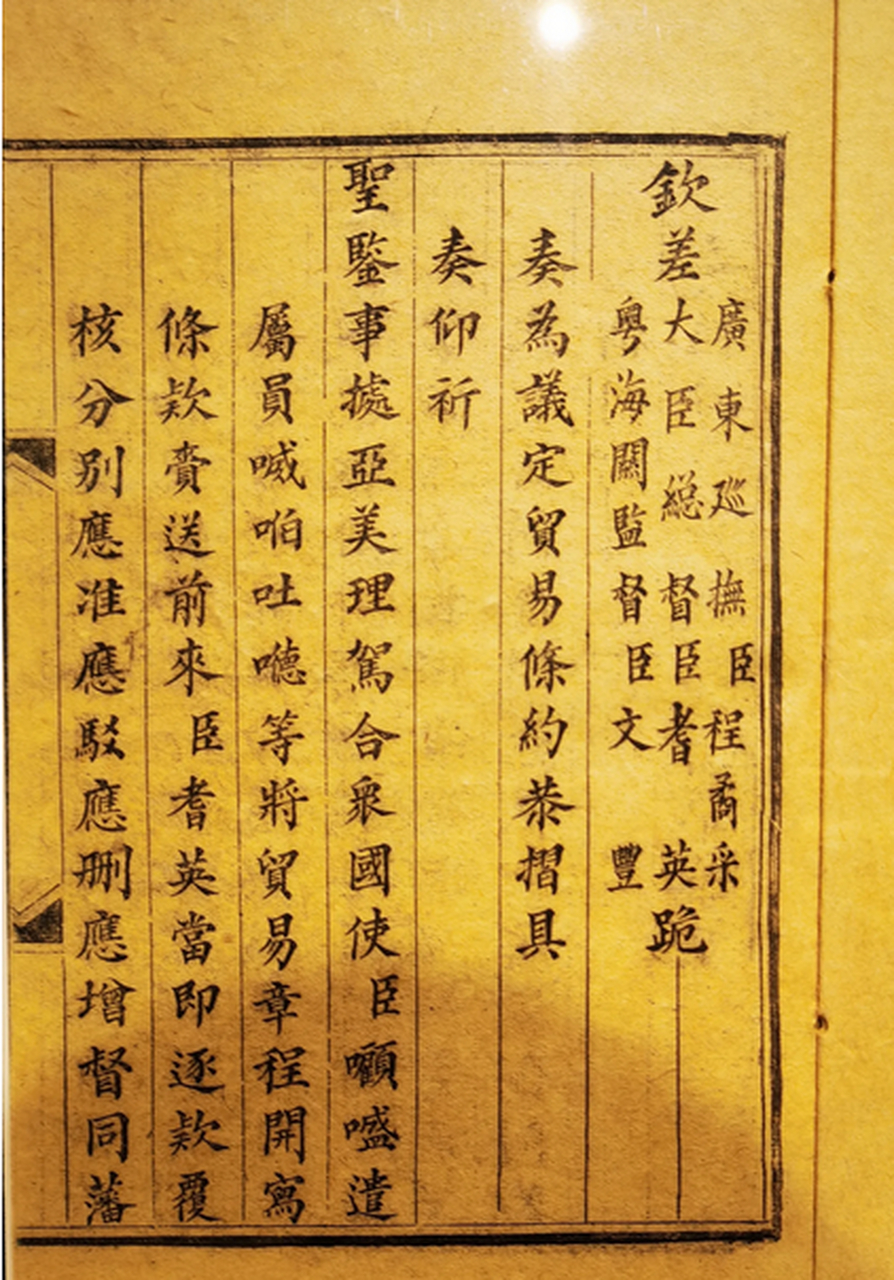 廣東廵撫臣程矞采
欽差大臣緫督臣耆英跪
粵海關監督臣文豐
奏為議定貿易條約恭摺具
奏仰祈
聖鑒事據亞美理駕合衆國使臣遣
屬員喴啪吐等將貿易章程開寫
條款賫送前來臣耆英當即逐款覆
核分别應准應駁應删應增督同藩